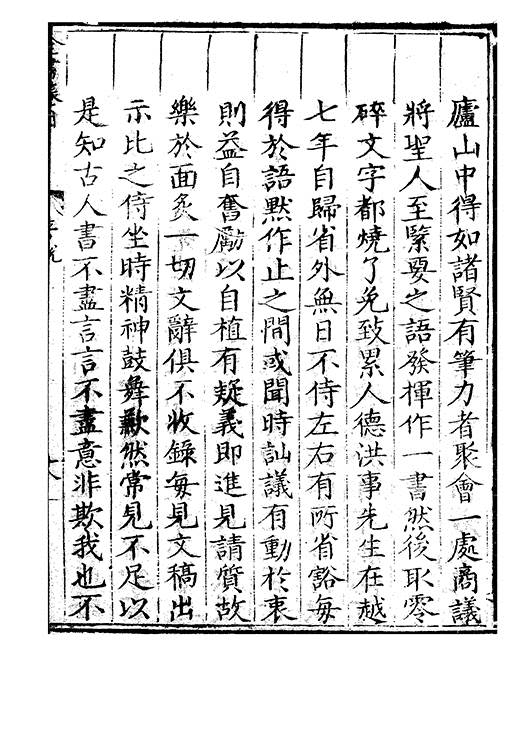 廬山中得如諸賢有筆力者聚會一處商議
將聖人至緊要之語發揮作一書然後取零
碎文字都燒了免致累人德洪事先生在越
七年自歸省外無日不侍左右有所省豁每
得於語默作止之間或聞時訕議有動於衷
則益自奮勵以自植有疑義即進見請質故
樂於面炙一切文辭俱不收錄每見文稿出
示比之侍坐時精神鼓舞歉然常見不足以
是知古人書不盡言言不盡意非欺我也不